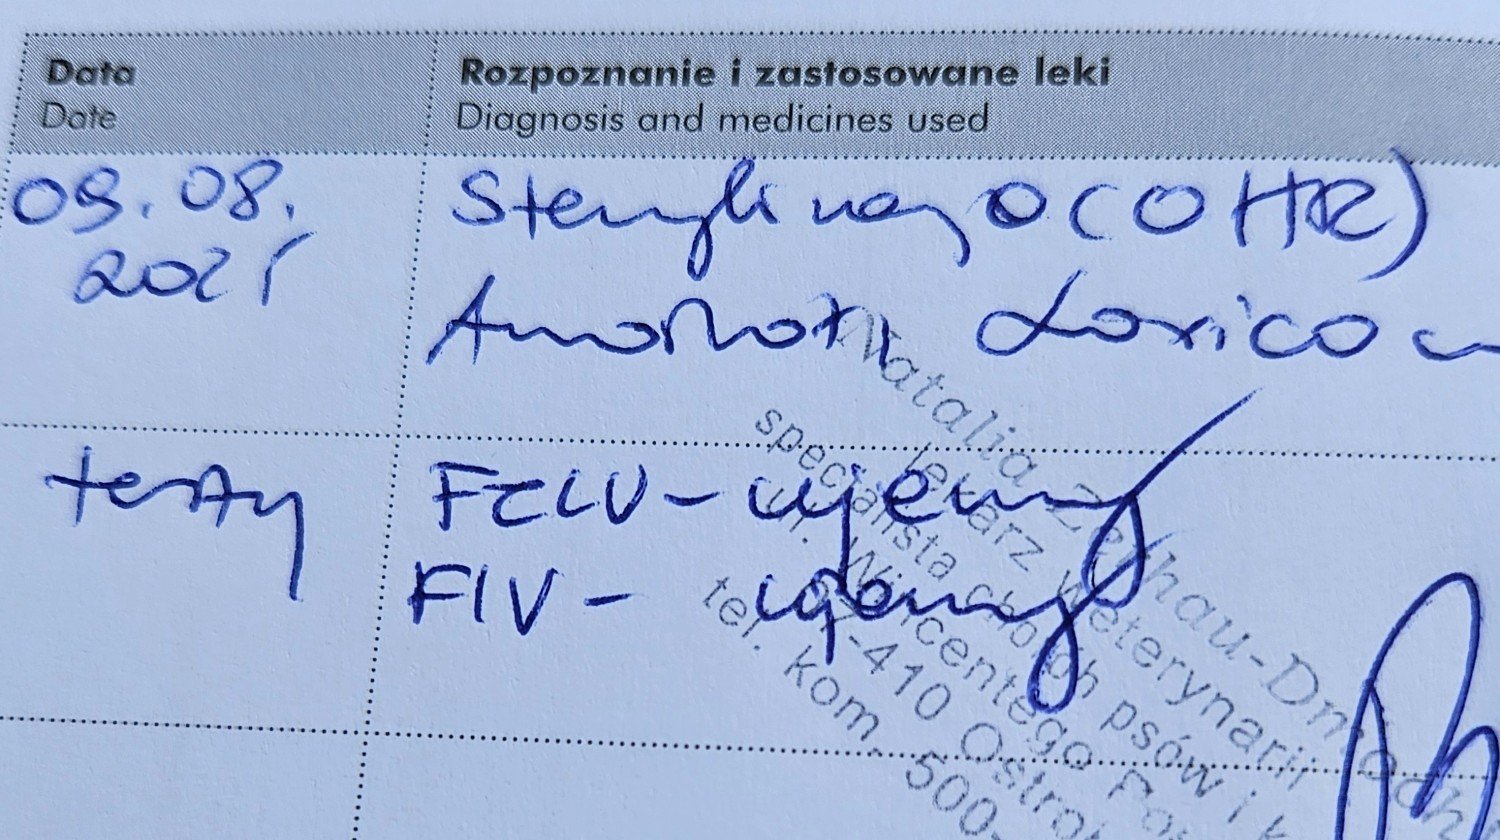 Data
Date
Rozpoznanie i zastosowane leki
Diagnosis and medicines used
09.08.
2021
Sterylizacja (OHE)
Loxicom
testy
FeLV - ujemny
FIV - ujemny
Natalia
lekarz weterynarii
specjalista chorób psów i k
ul. Wincentego
-410 Ostro
tel. kom. 500